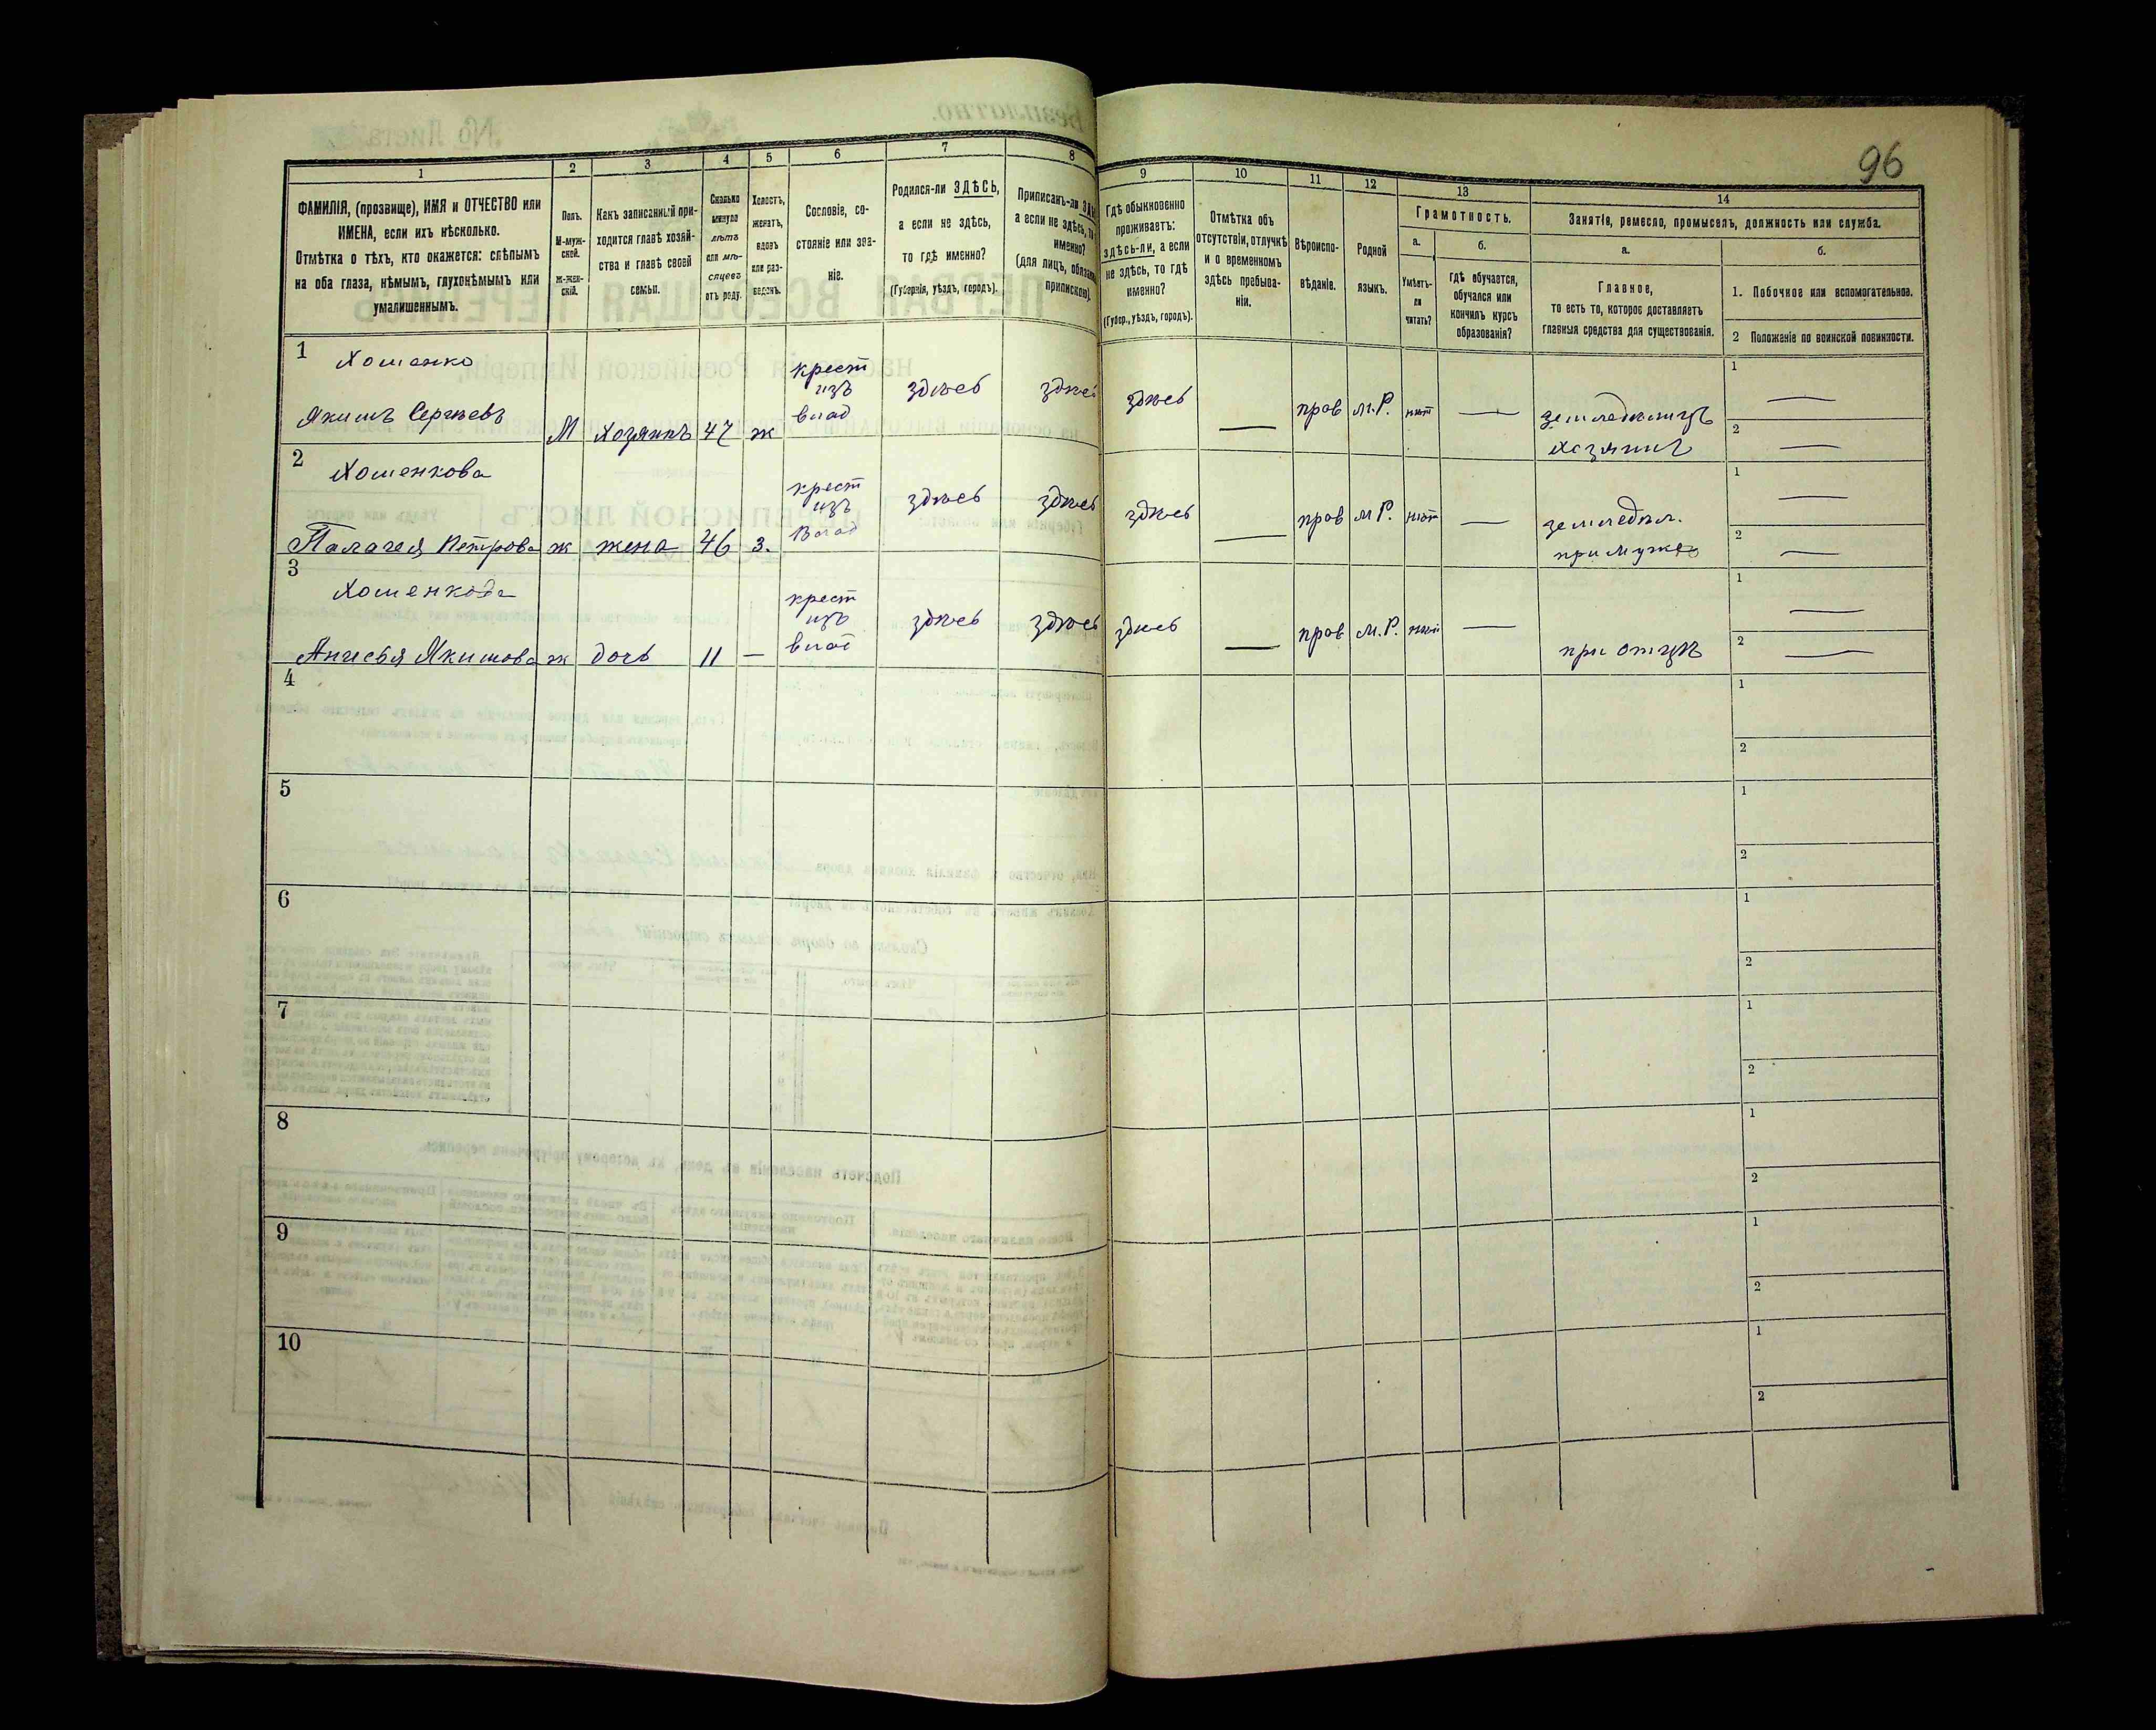 96
1
2
3
4
5
6
7
8
9
10
11
12
13
14
ФАМИЛІЯ, (прозвище), ИМЯ и ОТЧЕСТВО или
ИМЕНА, если ихъ нѣсколько.
Отмѣтка о тѣхъ, кто окажется: слѣпымъ
на оба глаза, нѣмымъ, глухонѣмымъ или
умалишеннымъ.
Полъ.
М-муж-
ской.
Ж-жен-
скій.
Какъ записанный при-
ходится главѣ хозяй-
ства и главѣ своей
семьи.
Сколько
минуло
лѣтъ
или мѣ-
сяцевъ
отъ роду.
Холостъ,
женатъ,
вдовъ
или раз-
веденъ.
Сословіе, со-
стояніе или зва-
ніе.
Родился-ли ЗДѢСЬ,
а если не здѣсь,
то гдѣ именно?
(Губернія, уѣздъ, городъ).
Приписанъ-ли
а если не здѣсь,
именно?
(для лицъ,
припискою).
Гдѣ обыкновенно
проживаетъ:
здѣсь-ли, а если
не здѣсь, то гдѣ
именно?
(Губер., уѣздъ, городъ).
Отмѣтка объ
отсутствіи, отлучкѣ
и о временномъ
здѣсь пребыва-
ніи.
Вѣроиспо-
вѣданіе.
Родной
языкъ.
Грамотность.
а.
Умѣетъ-
ли
читать?
б.
Гдѣ обучается,
обучался или
кончилъ курсъ
образованія?
Занятіе, ремесло, промыселъ, должность или служба.
а.
Главное,
то есть то, которое доставляетъ
главныя средства для существованія.
б.
1. Побочное или вспомогательное.
2 Положеніе по воинской повинности.
1
Хоменко
Якимъ Сергѣевъ
М
Хозяинъ
47
ж
крест
изъ
влад
здѣсь
здѣсь
здѣсь
—
прав
М.Р.
нѣт
—
земледѣлецъ
хозяинъ
1
—
2
—
2
Хоменкова
Палагея Петрова
ж
жена
46
з.
крест
изъ
влад
здѣсь
здѣсь
здѣсь
—
прав
М Р.
нѣт
—
земледѣл.
при мужѣ
1
—
2
—
3
Хоменкова
Анисья Якимова
ж
дочь
11
—
крест
изъ
влад
здѣсь
здѣсь
здѣсь
—
прав
М.Р.
нѣт
—
при отцѣ
1
—
2
—
4
1
2
5
1
2
6
1
2
7
1
2
8
1
2
9
1
2
10
1
2